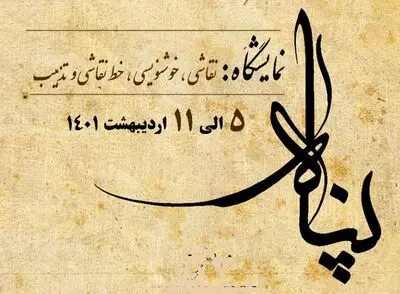 نمایشگاه: نقاشی، خوشنویسی، خط نقاشی و تذهیب
۵ الی ۱۱ اردیبهشت ۱۴۰۱